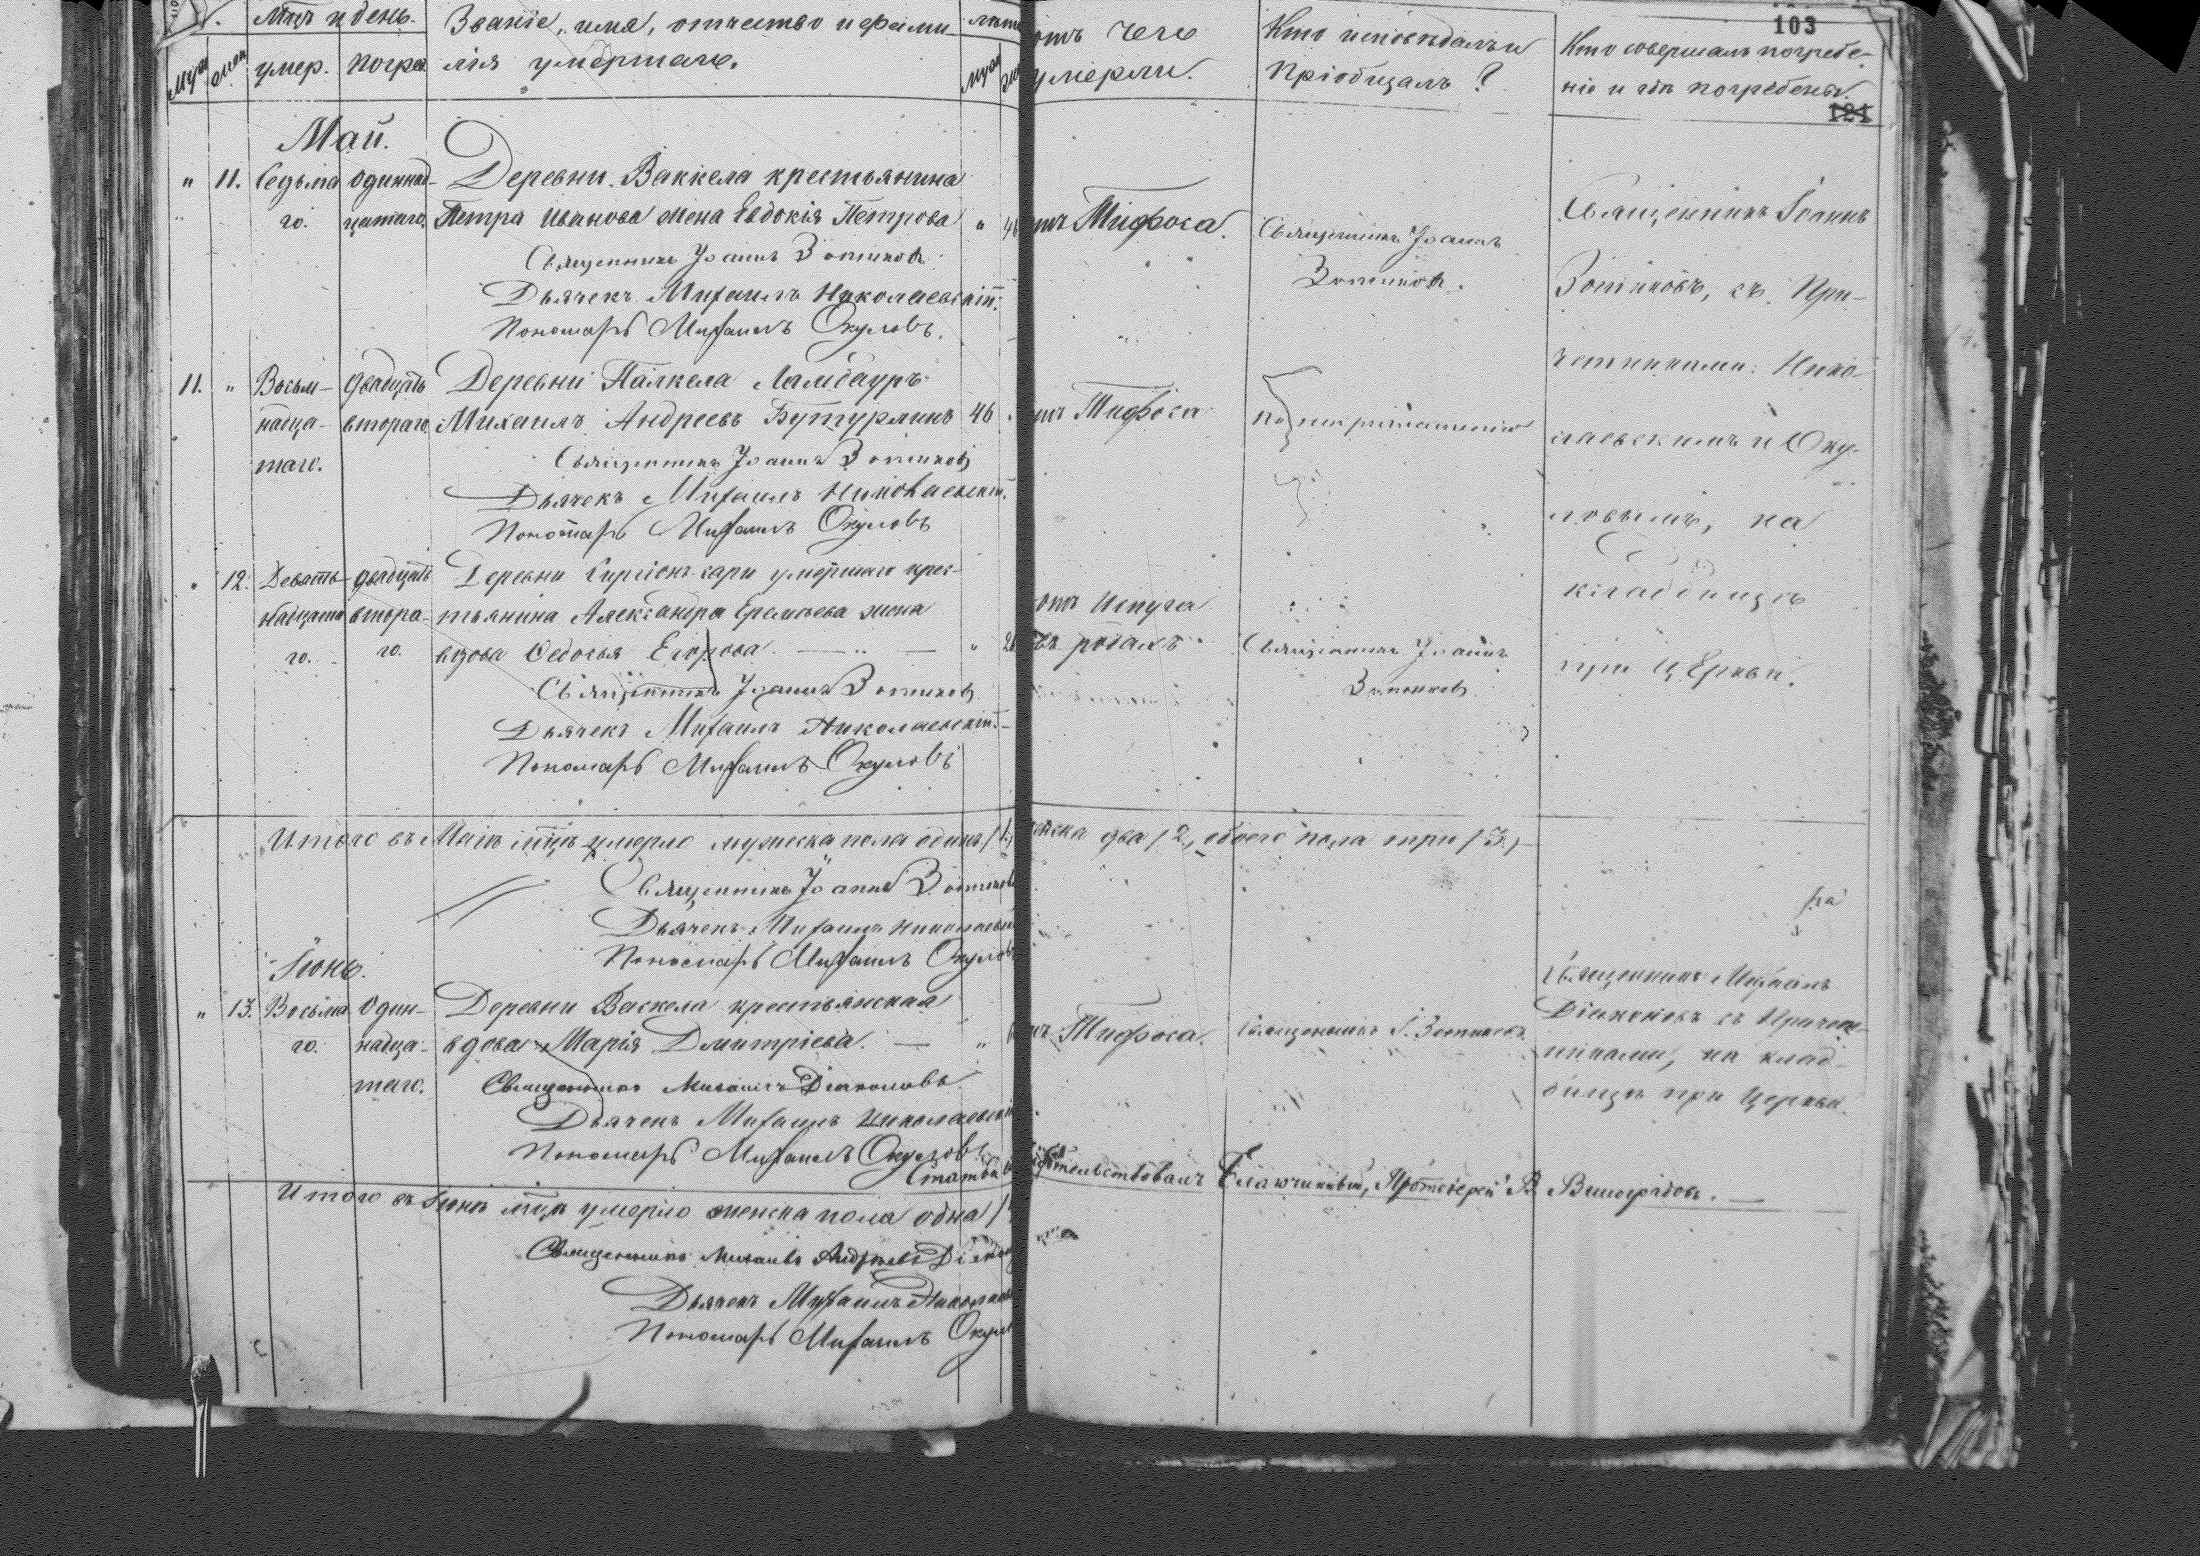 103
Мцъ и день.
Званіе, имя, отчество и фами-
лѣта
отъ чего
Кто исповѣдалъ и
Кто совершалъ погребе-
муж
умер.
погре
лія умершаго.
умерли.
пріобщалъ?
ніе и гдѣ погребены.
121
Май.
" 11. Седьма одиннад- Деревни Ваккела крестьянина
го. цатаго. Петра Иванова жена Евдокія Петрова " 46 отъ Тифоса. Священникъ Іоаннъ Зотиковъ.
Священникъ Іоаннъ Зотиковъ
Дьячекъ Михаилъ Николаевскій.
Пономарь Михаилъ Окуловъ.
Священникъ Іоаннъ
Зотиковъ, съ При-
четниками: Нико-
лаевскимъ и Оку-
ловымъ, на
кладбищѣ
при Церкви.
11. " Восьм- двадцать Деревни Палкела
надца- втораго. Михаилъ Андреевъ Бутурлинъ 46 отъ Тифоса
таго.
Священникъ Іоаннъ Зотиковъ
Дьячекъ Михаилъ Николаевскій.
Пономарь Михаилъ Окуловъ
" 12. Девять- двадцать Деревни умершаго крес-
надцата втора- тьянина Александра Еремѣева жена отъ Испуга
го. го. вдова Федосья Егорова " въ родахъ. Священникъ Іоаннъ
Зотиковъ
Священникъ Іоаннъ Зотиковъ
Дьячекъ Михаилъ Николаевскій.
Пономарь Михаилъ Окуловъ
Итого въ Маѣ мцѣ умерло мужеска пола одинъ /1/ женска два /2/, обоего пола три /3/
Священникъ Іоаннъ Зотиковъ
Дьячекъ Михаилъ Николаевскій
Пономарь Михаилъ Окуловъ
Іюнь.
" 13. Восьма Один- Деревни Васкела крестьянская
го. надца- вдова Марія Дмитріева. " отъ Тифоса. Священникъ І. Зотиковъ.
таго. Священникъ Михаилъ Діаконовъ.
Дьячекъ Михаилъ Николаевскій
Пономарь Михаилъ Окуловъ.
Священникъ Михаилъ
Діаконовъ съ Причет-
никами, на клад-
бищѣ при Церкви.
Протоіерей В. Виноградовъ.
Итого въ Іюнѣ мцѣ умерло женска пола одна /1
Священникъ Михаилъ Андреевъ Діаконовъ
Дьячекъ Михаилъ Николаевскій
Пономарь Михаилъ Окуловъ